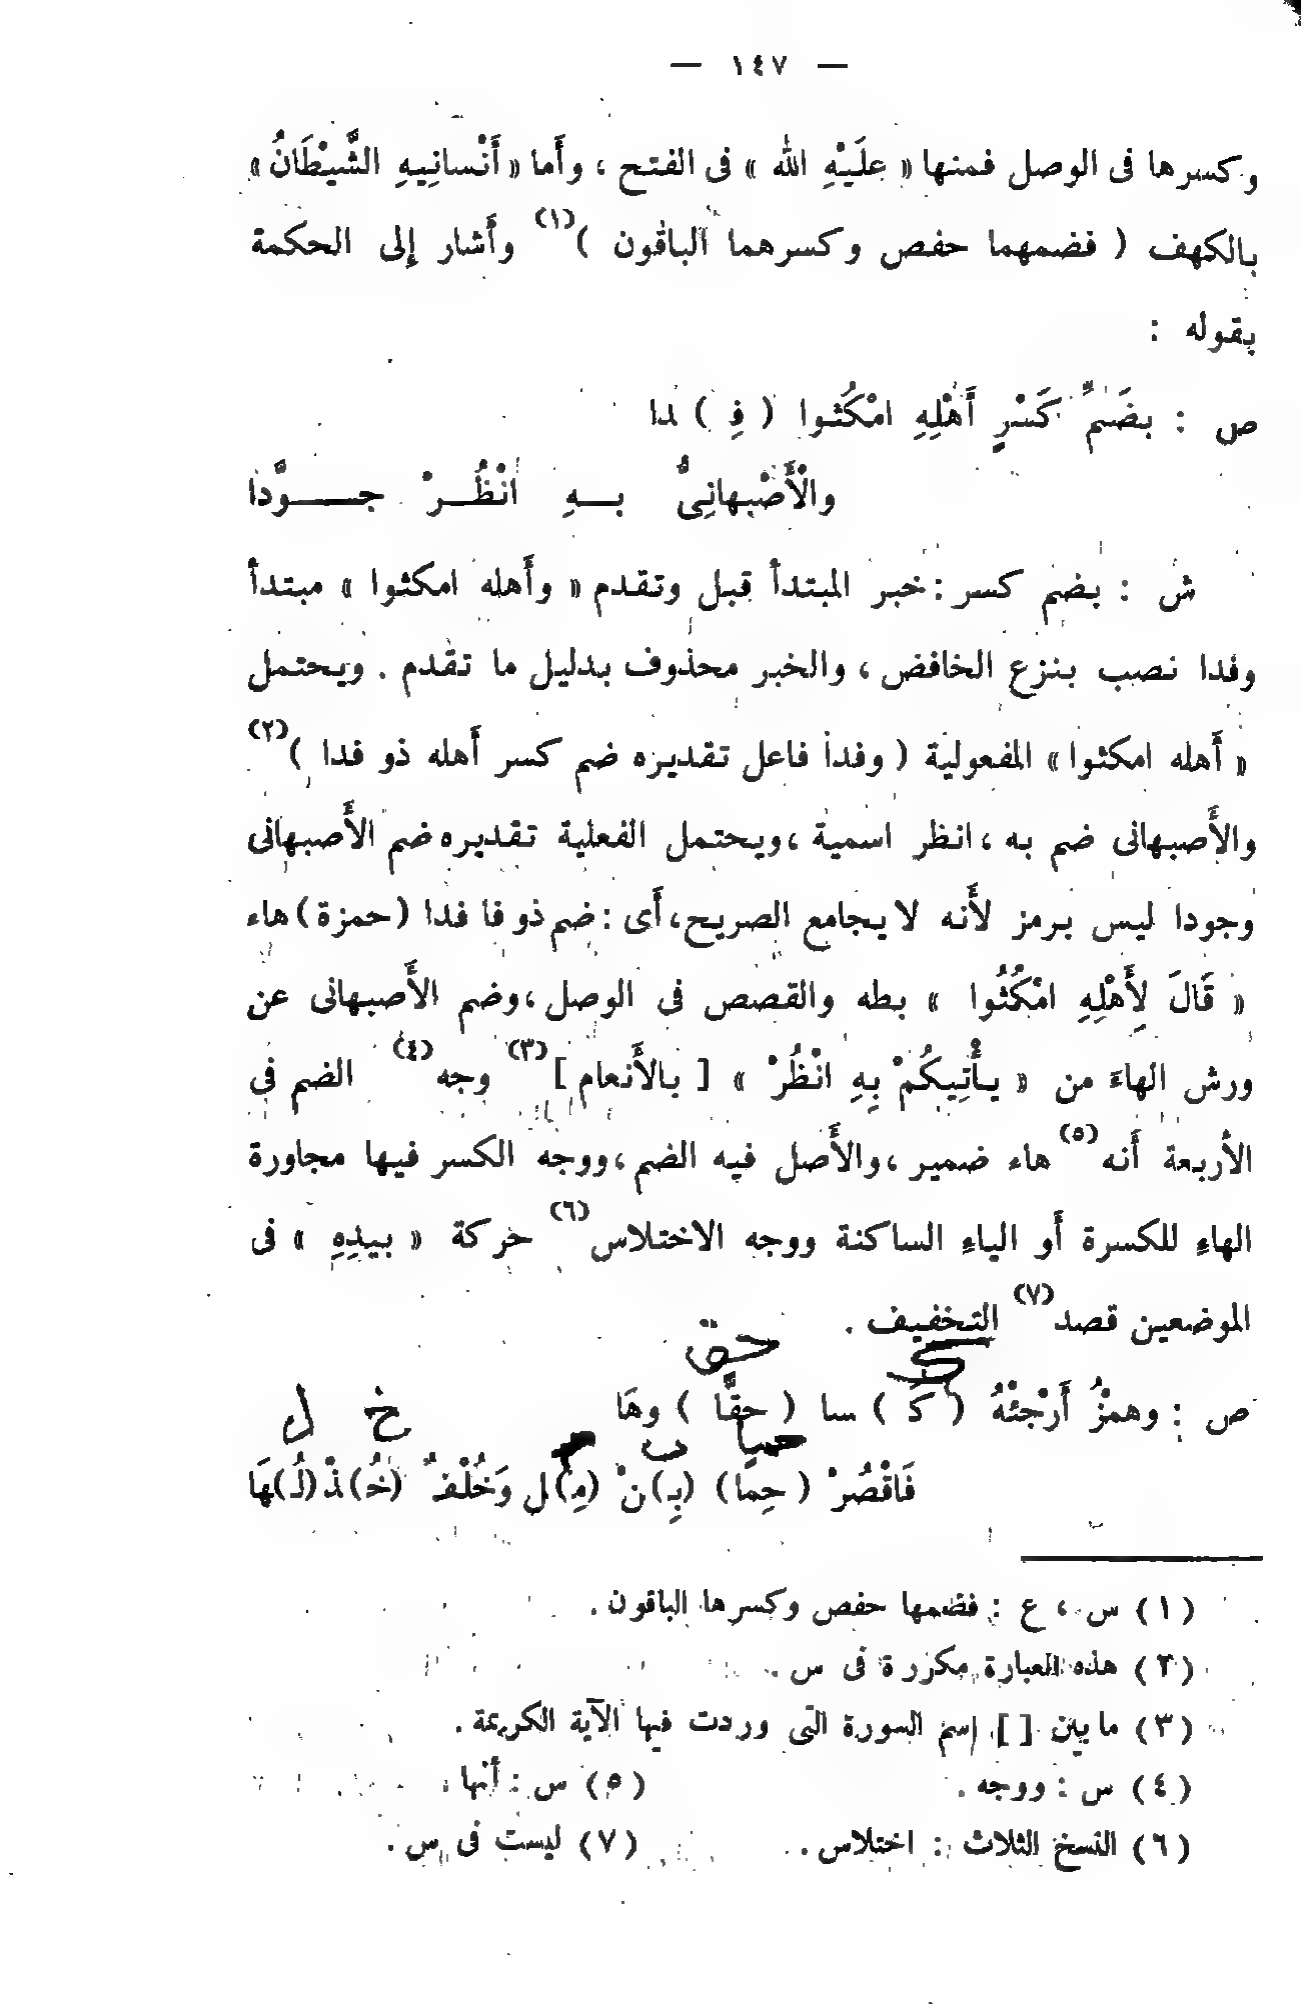 — ١٤٧ —
وكسرها فى الوصل فمنها « علَيْهِ الله » فى الفتح ، وأَما « أَنْسانِيهِ الشَّيْطَانُ »
بالكهف ( فضمهما حفص وكسرهما الباقون )(١) وأَشار إلى الحكمة
بقوله :
ص : بضَمِّ كَسْرٍ أَهْلِهِ امْكُثوا ( فِ ) ـدا
والْأَصْبهانِىُّ بـــهِ انْظُـــرْ جـــــوَّدا
ش : بضم كسر : خبر المبتدأ قبل وتقدم « وأَهله امكثوا » مبتدأ
وفدا نصب بنزع الخافض ، والخبر محذوف بدليل ما تقدم . ويحتمل
« أَهله امكثوا » المفعولية ( وفدا فاعل تقديره ضم كسر أَهله ذو فدا )(٢)
والأَصبهانى ضم به ، انظر اسمية ، ويحتمل الفعلية تقديره ضم الأَصبهانى
وجودا ليس برمز لأَنه لا يجامع الصريح ، أَى : ضم ذو فا فدا (حمزة) هاء
« قَالَ لِأَهْلِهِ امْكُثُوا » بطه والقصص فى الوصل ، وضم الأَصبهانى عن
ورش الهاءَ من « يأْتِيكُمْ بِهِ انْظُرْ » [ بالأَنعام ](٣) وجه(٤) الضم فى
الأربعة أَنه(٥) هاء ضمير ، والأَصل فيه الضم ، ووجه الكسر فيها مجاورة
الهاءِ للكسرة أَو الياءِ الساكنة ووجه الاختلاس(٦) حركة « بيدِهِ » فى
الموضعين قصد(٧) التخفيف .
حق
ص : وهمزُ أَرْجئْهُ ( كَـ ) سا ( حقًّا ) وهَا
حما ب م خ ل
فَاقْصُرْ ( حِمًا ) (بِـ) نْ (مِـ) ل وَخُلْفٌ (خُـ) ذْ (لُـ) هَا
(١) س ، ع : فضمها حفص وكسرها الباقون .
(٢) هذه العبارة مكررة فى س .
(٣) ما بين [ ] اسم السورة التى وردت فيها الآية الكريمة .
(٤) س : ووجه . (٥) س : أنها .
(٦) النسخ الثلاث : اختلاس . (٧) ليست فى س .